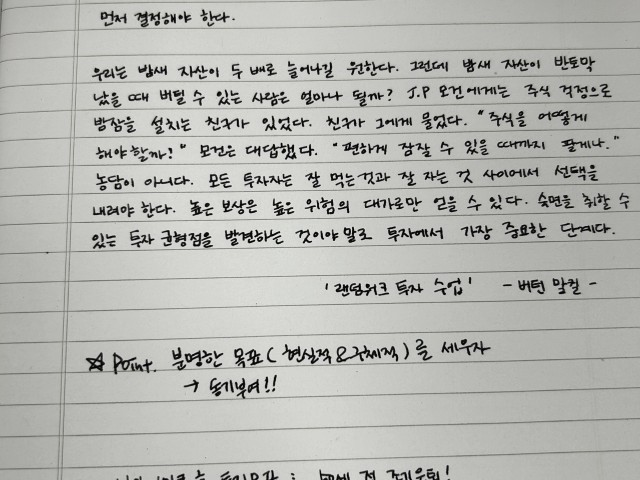 먼저 결정해야 한다.
우리는 밤새 자산이 두 배로 늘어나길 원한다. 그런데 밤새 자산이 반토막
났을 때 버틸 수 있는 사람은 얼마나 될까? J.P 모건에게는 주식 걱정으로
밤잠을 설치는 친구가 있었다. 친구가 그에게 물었다. "주식을 어떻게
해야 할까?" 모건은 대답했다. "편하게 잠잘 수 있을 때까지 팔게나."
농담이 아니다. 모든 투자자는 잘 먹는 것과 잘 자는 것 사이에서 선택을
내려야 한다. 높은 보상은 높은 위험의 대가로만 얻을 수 있다. 숙면을 취할 수
있는 투자 균형점을 발견하는 것이야 말로 투자에서 가장 중요한 단계다.
'랜덤워크 투자 수업' - 버턴 말킬 -
☆ Point. 분명한 목표( 현실적&구체적)를 세우자
→ 동기부여!!